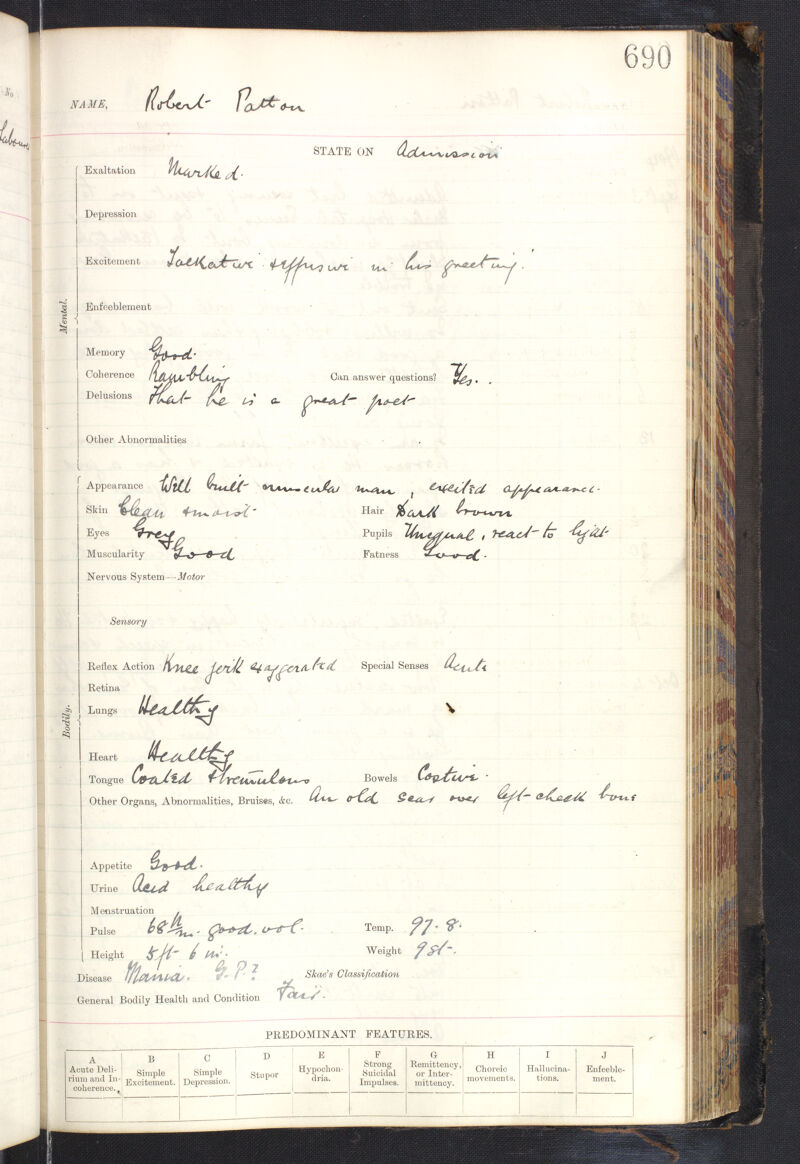 690
No
NAME, Robert Patton
STATE ON Admission
Mental.
Exaltation Marked.
Depression
Excitement Talkative & effusive in his greeting.
Enfeeblement
Memory Good.
Coherence Rambling Can answer questions? Yes.
Delusions That he is a great poet
Other Abnormalities
Bodily.
Appearance Well built muscular man, excited appearance.
Skin Clean & moist Hair Dark brown
Eyes Grey Pupils Unequal, react to light
Muscularity Good Fatness Good.
Nervous System—Motor
Sensory
Reflex Action Knee jerk exaggerated Special Senses Acute
Retina
Lungs Healthy
Heart Healthy
Tongue Coated & tremulous Bowels Costive.
Other Organs, Abnormalities, Bruises, &c. An old scar over left cheek bone
Appetite Good.
Urine Acid healthy
Menstruation
Pulse 68 good. vol. Temp. 97.8.
Height 5 ft 6 in. Weight 9 st.
Disease Mania. G.P.? Skae's Classification
General Bodily Health and Condition Fair.
PREDOMINANT FEATURES.
A B C D E F G H I J
Acute Delirium and Incoherence. Simple Excitement. Simple Depression. Stupor Hypochondria. Strong Suicidal Impulses. Remittency, or Intermittency. Choreic movements. Hallucinations. Enfeeblement.